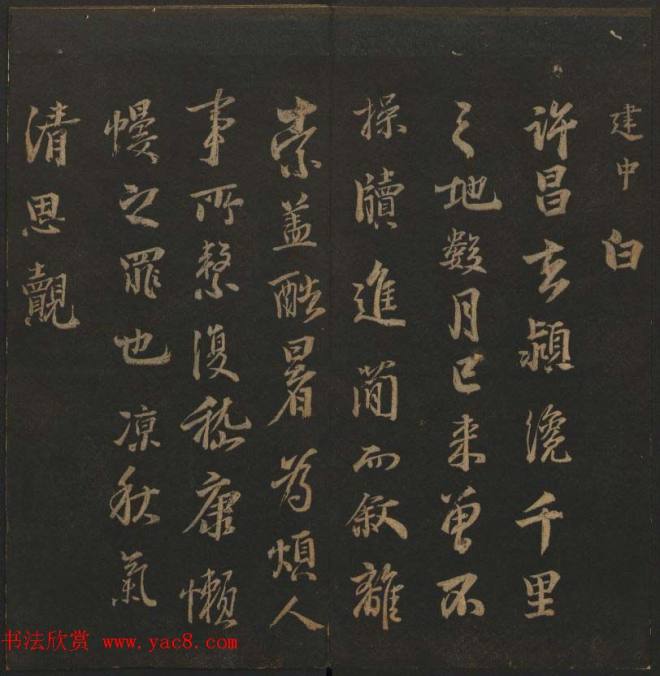 建中白
許昌去潁濆千里
之地數月已来曽不
操牘進簡而叙離
索盖酷暑為煩人
事所繫復嵇康懶
慢之罪也凉秋氣
清思覿
书法欣赏 www.yac8.com